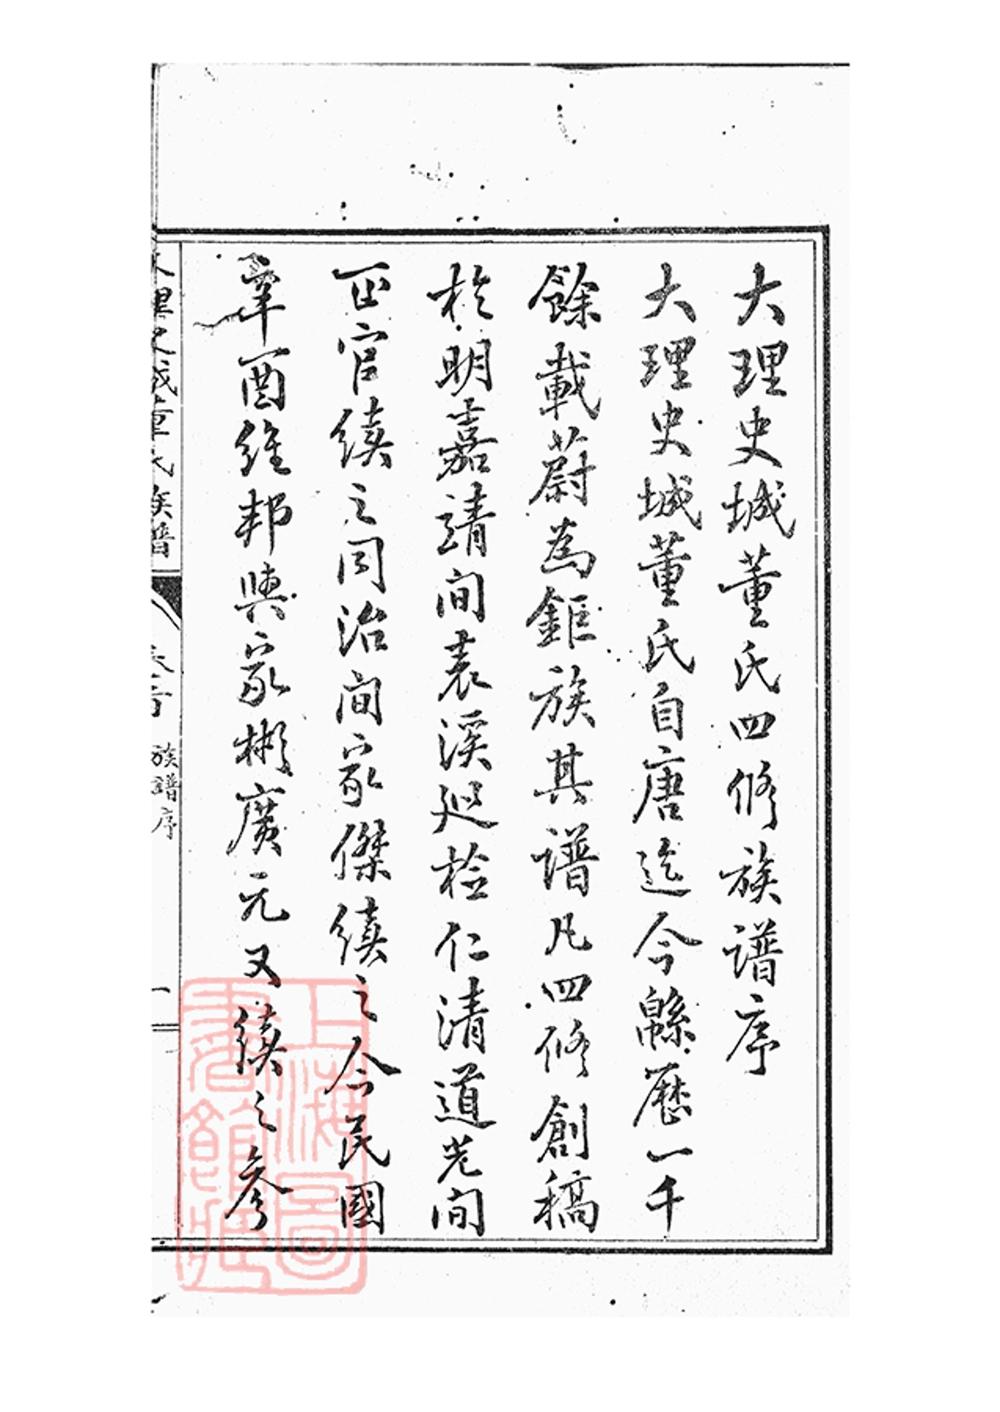 大理史城董氏四修族譜序
大理史城董氏自唐迄今緜歷一千
餘載蔚為鉅族其譜凡四修創稿
於明嘉靖間表溪巡检仁清道光间
正官續之同治间家傑續之今民國
辛酉維邦與家彬廣元又續之參
大理史城董氏族譜
卷首
族譜序
一
上海圖書館藏